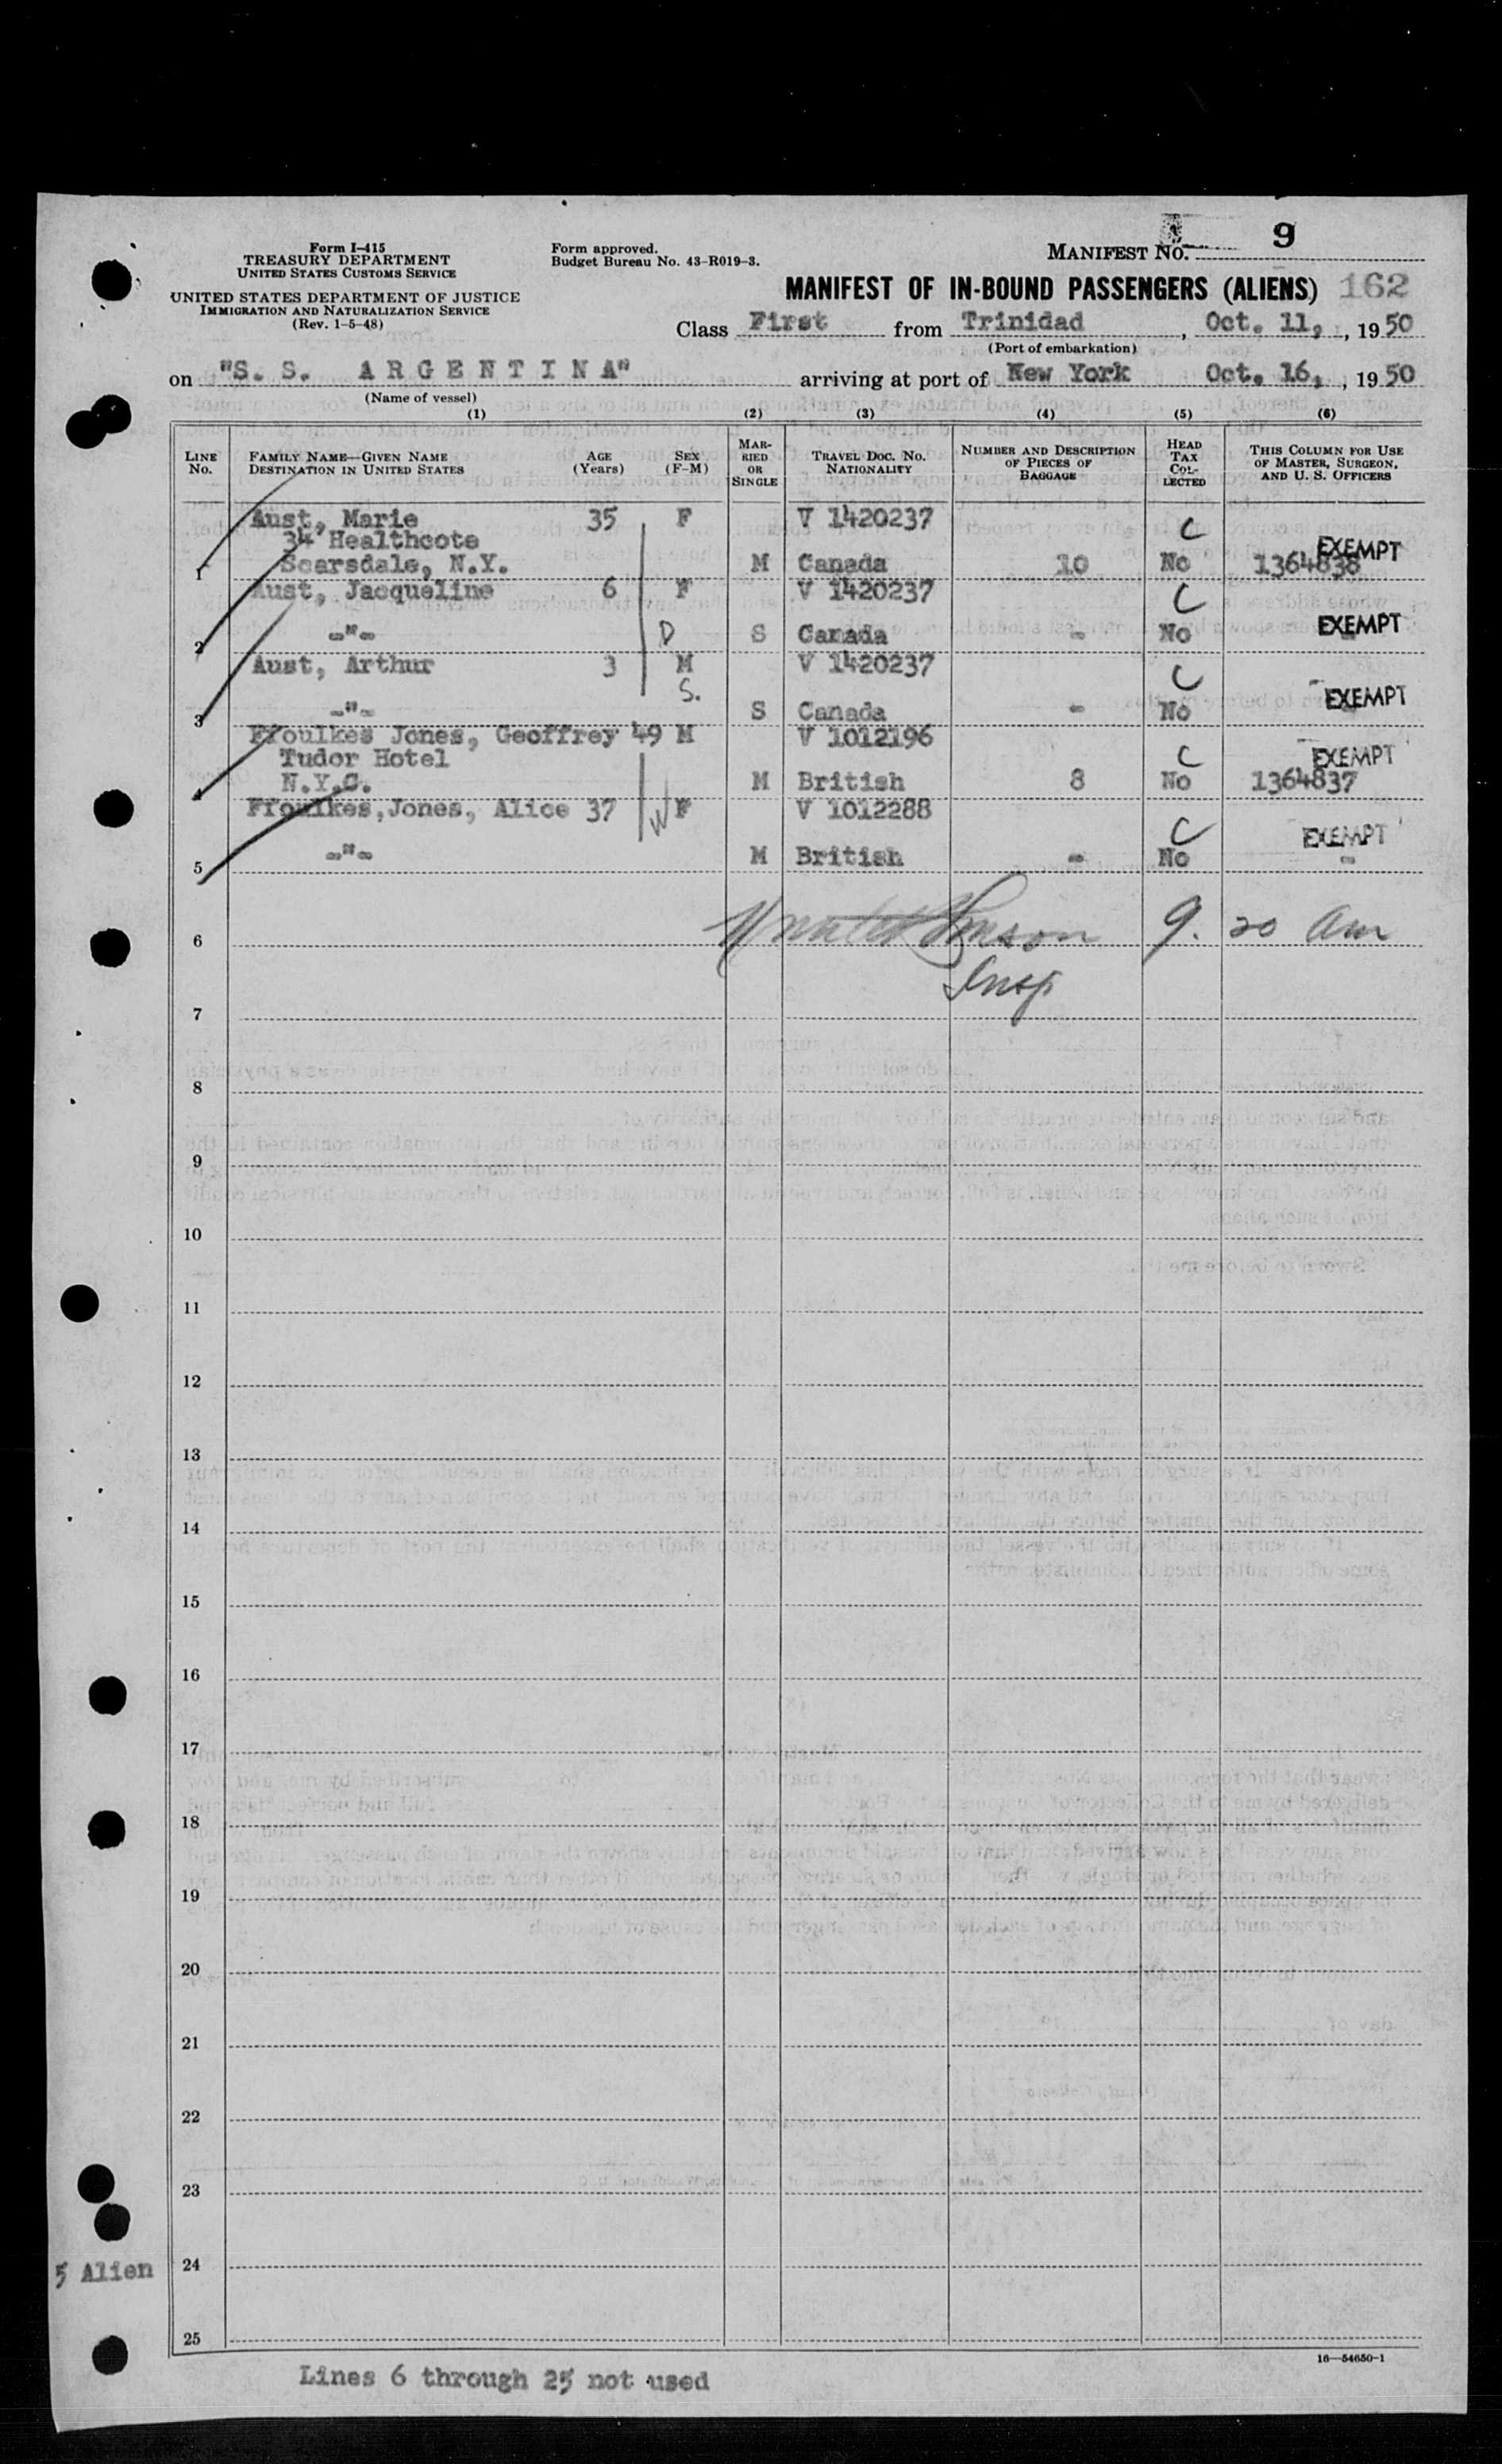 Form I-415
TREASURY DEPARTMENT
UNITED STATES CUSTOMS SERVICE
UNITED STATES DEPARTMENT OF JUSTICE
IMMIGRATION AND NATURALIZATION SERVICE
(Rev. 1-5-48)
Form approved.
Budget Bureau No. 43-R019-3.
MANIFEST NO. 9
MANIFEST OF IN-BOUND PASSENGERS (ALIENS) 162
Class First from Trinidad, Oct. 11, , 1950
(Port of embarkation)
on "S. S. ARGENTINA" arriving at port of New York Oct. 16, , 1950
(Name of vessel)
(1) (2) (3) (4) (5) (6)
LINE No. FAMILY NAME—GIVEN NAME DESTINATION IN UNITED STATES AGE (Years) SEX (F-M) MARRIED OR SINGLE TRAVEL DOC. NO. NATIONALITY NUMBER AND DESCRIPTION OF PIECES OF BAGGAGE HEAD TAX COLLECTED THIS COLUMN FOR USE OF MASTER, SURGEON, AND U. S. OFFICERS
Aust, Marie 35 F V 1420237 C
34 Healthcote EXEMPT
1 Scarsdale, N.Y. M Canada 10 No 1364838
Aust, Jacqueline 6 F V 1420237 C
2 -"- D S Canada - No EXEMPT
Aust, Arthur 3 M V 1420237 C
S.
3 -"- S Canada - No EXEMPT
Ffoulkes Jones, Geoffrey 49 M V 1012196
Tudor Hotel C EXEMPT
4 N.Y.C. M British 8 No 1364837
Ffoulkes,Jones, Alice 37 W F V 1012288
C EXEMPT
5 -"- M British - No -
6 9. 20 am
Insp
7
8
9
10
11
12
13
14
15
16
17
18
19
20
21
22
23
5 Alien 24
25
16—54650-1
Lines 6 through 25 not used